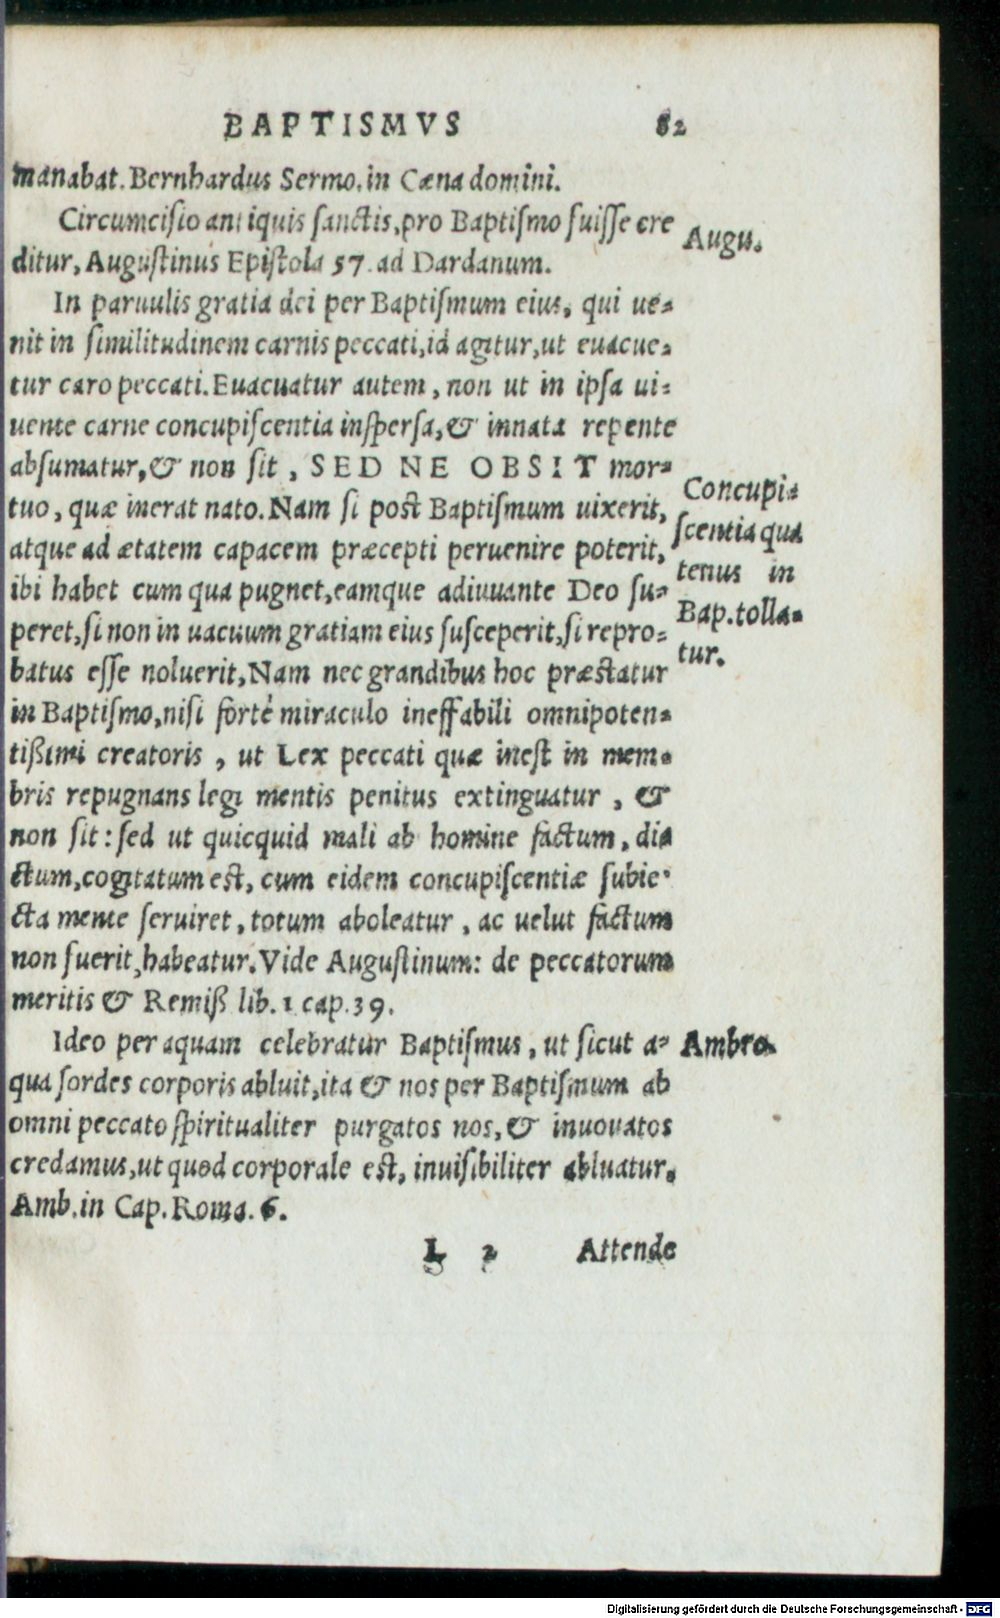 BAPTISMVS 82
manabat. Bernhardus Sermo. in Cæna domini.
Circumcisio antiquis sanctis, pro Baptismo fuisse cre
ditur, Augustinus Epistola 57. ad Dardanum.
Augu.
In paruulis gratia dei per Baptismum eius, qui ue-
nit in similitudinem carnis peccati, id agitur, ut euacue-
tur caro peccati. Euacuatur autem, non ut in ipsa ui-
uente carne concupiscentia inspersa, & innata repente
absumatur, & non sit, SED NE OBSIT mor-
tuo, quæ inerat nato. Nam si post Baptismum uixerit,
atque ad ætatem capacem præcepti peruenire poterit,
ibi habet cum qua pugnet, eamque adiuuante Deo su-
peret, si non in uacuum gratiam eius susceperit, si repro-
batus esse noluerit, Nam nec grandibus hoc præstatur
in Baptismo, nisi fortè miraculo ineffabili omnipoten-
tißimi creatoris, ut Lex peccati quæ inest in mem-
bris repugnans legi mentis penitus extinguatur, &
non sit: sed ut quicquid mali ab homine factum, di-
ctum, cogitatum est, cum eidem concupiscentiæ subie-
cta mente seruiret, totum aboleatur, ac uelut factum
non fuerit, habeatur. Vide Augustinum: de peccatorum
meritis & Remiß lib. 1 cap. 39.
Concupi-
scentia qua
tenus in
Bap. tolla-
tur.
Ideo per aquam celebratur Baptismus, ut sicut a-
qua sordes corporis abluit, ita & nos per Baptismum ab
omni peccato spiritualiter purgatos nos, & innouatos
credamus, ut quod corporale est, inuisibiliter abluatur.
Amb. in Cap. Roma. 6.
Ambro.
L 2 Attende
Digitalisierung gefördert durch die Deutsche Forschungsgemeinschaft - DFG